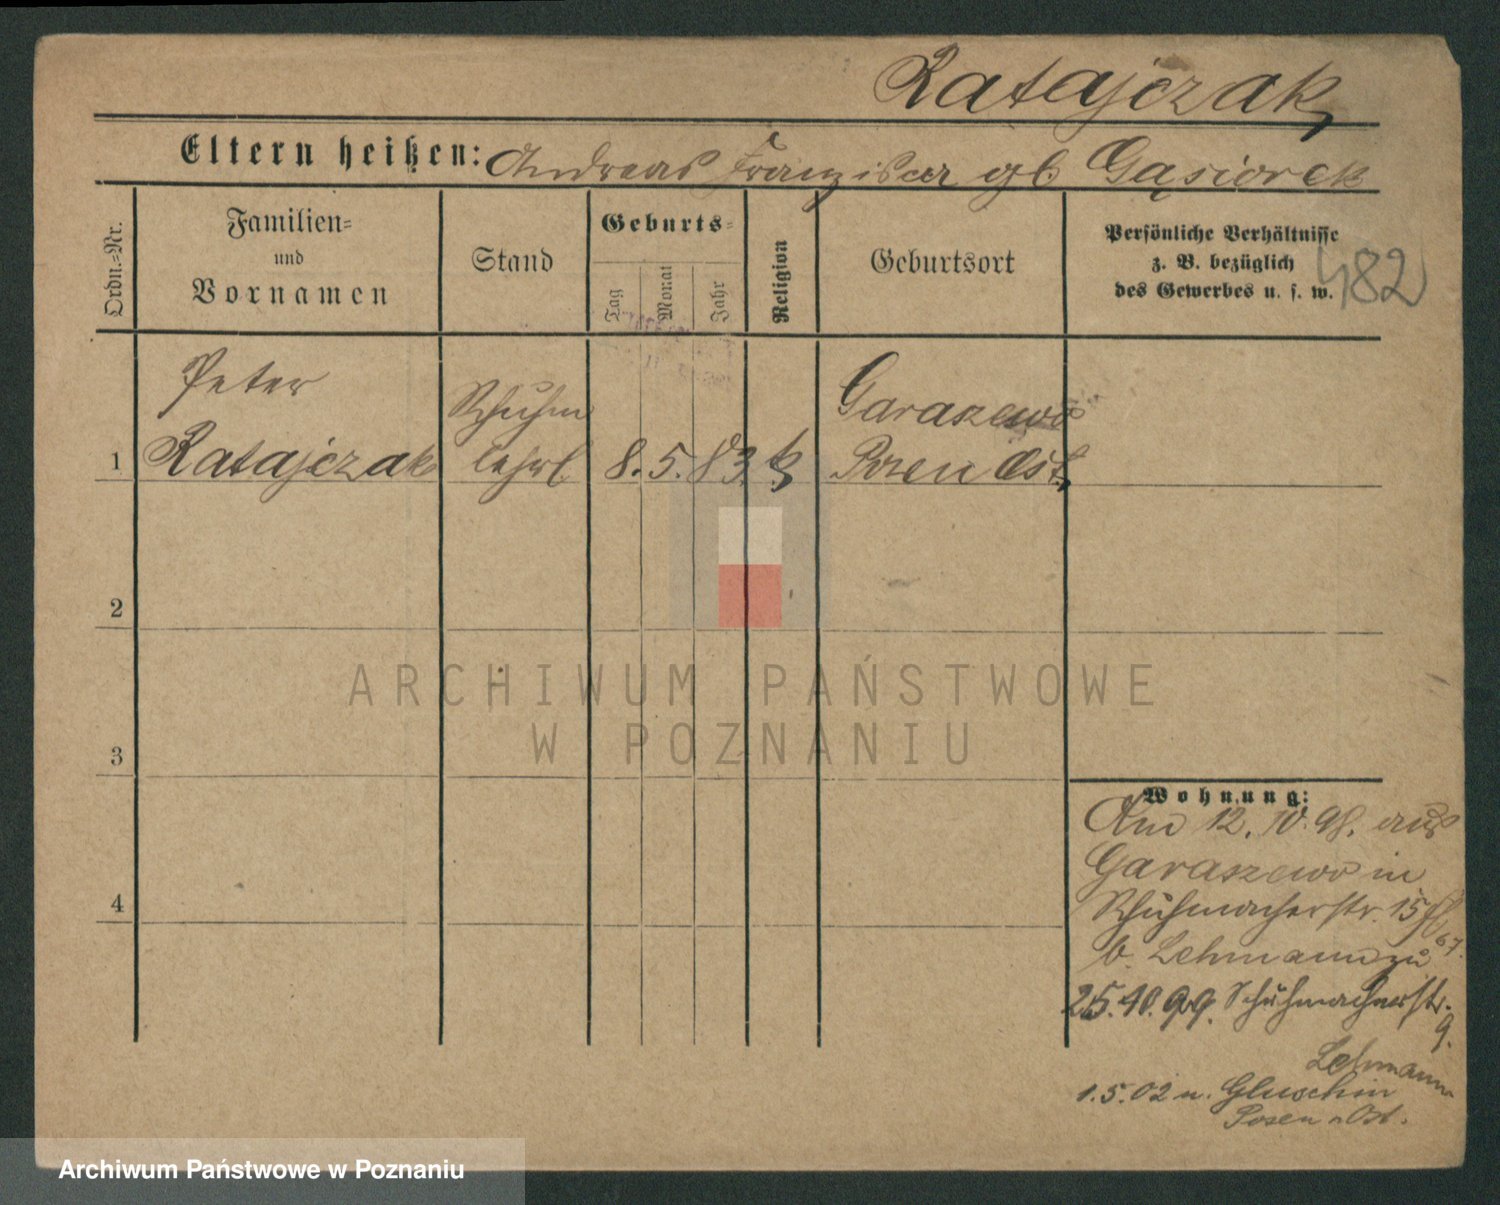 Ratajczak
Eltern heißen: Andreas Franziska gb Gąsiorek
Ordn.=Nr.
Familien=
und
Vornamen
Stand
Geburts=
Tag
Monat
Jahr
Religion
Geburtsort
Persönliche Verhältnisse
z. B. bezüglich
des Gewerbes u. s. w.
482
Peter Schuhm Garaszewo
1 Ratajczak lehrl. 8. 5. 83. k Posen Ost.
2
ARCHIWUM PAŃSTWOWE
W POZNANIU
3
Wohnung:
Am 12. 10. 98. aus
Garaszewo in
4 Schuhmacherstr. 15
b. Lehmann zu
25. 10. 99. Schuhmacherstr.
9.
Lehmann
1. 5. 02 n. Gluschin
Posen Ost.
Archiwum Państwowe w Poznaniu